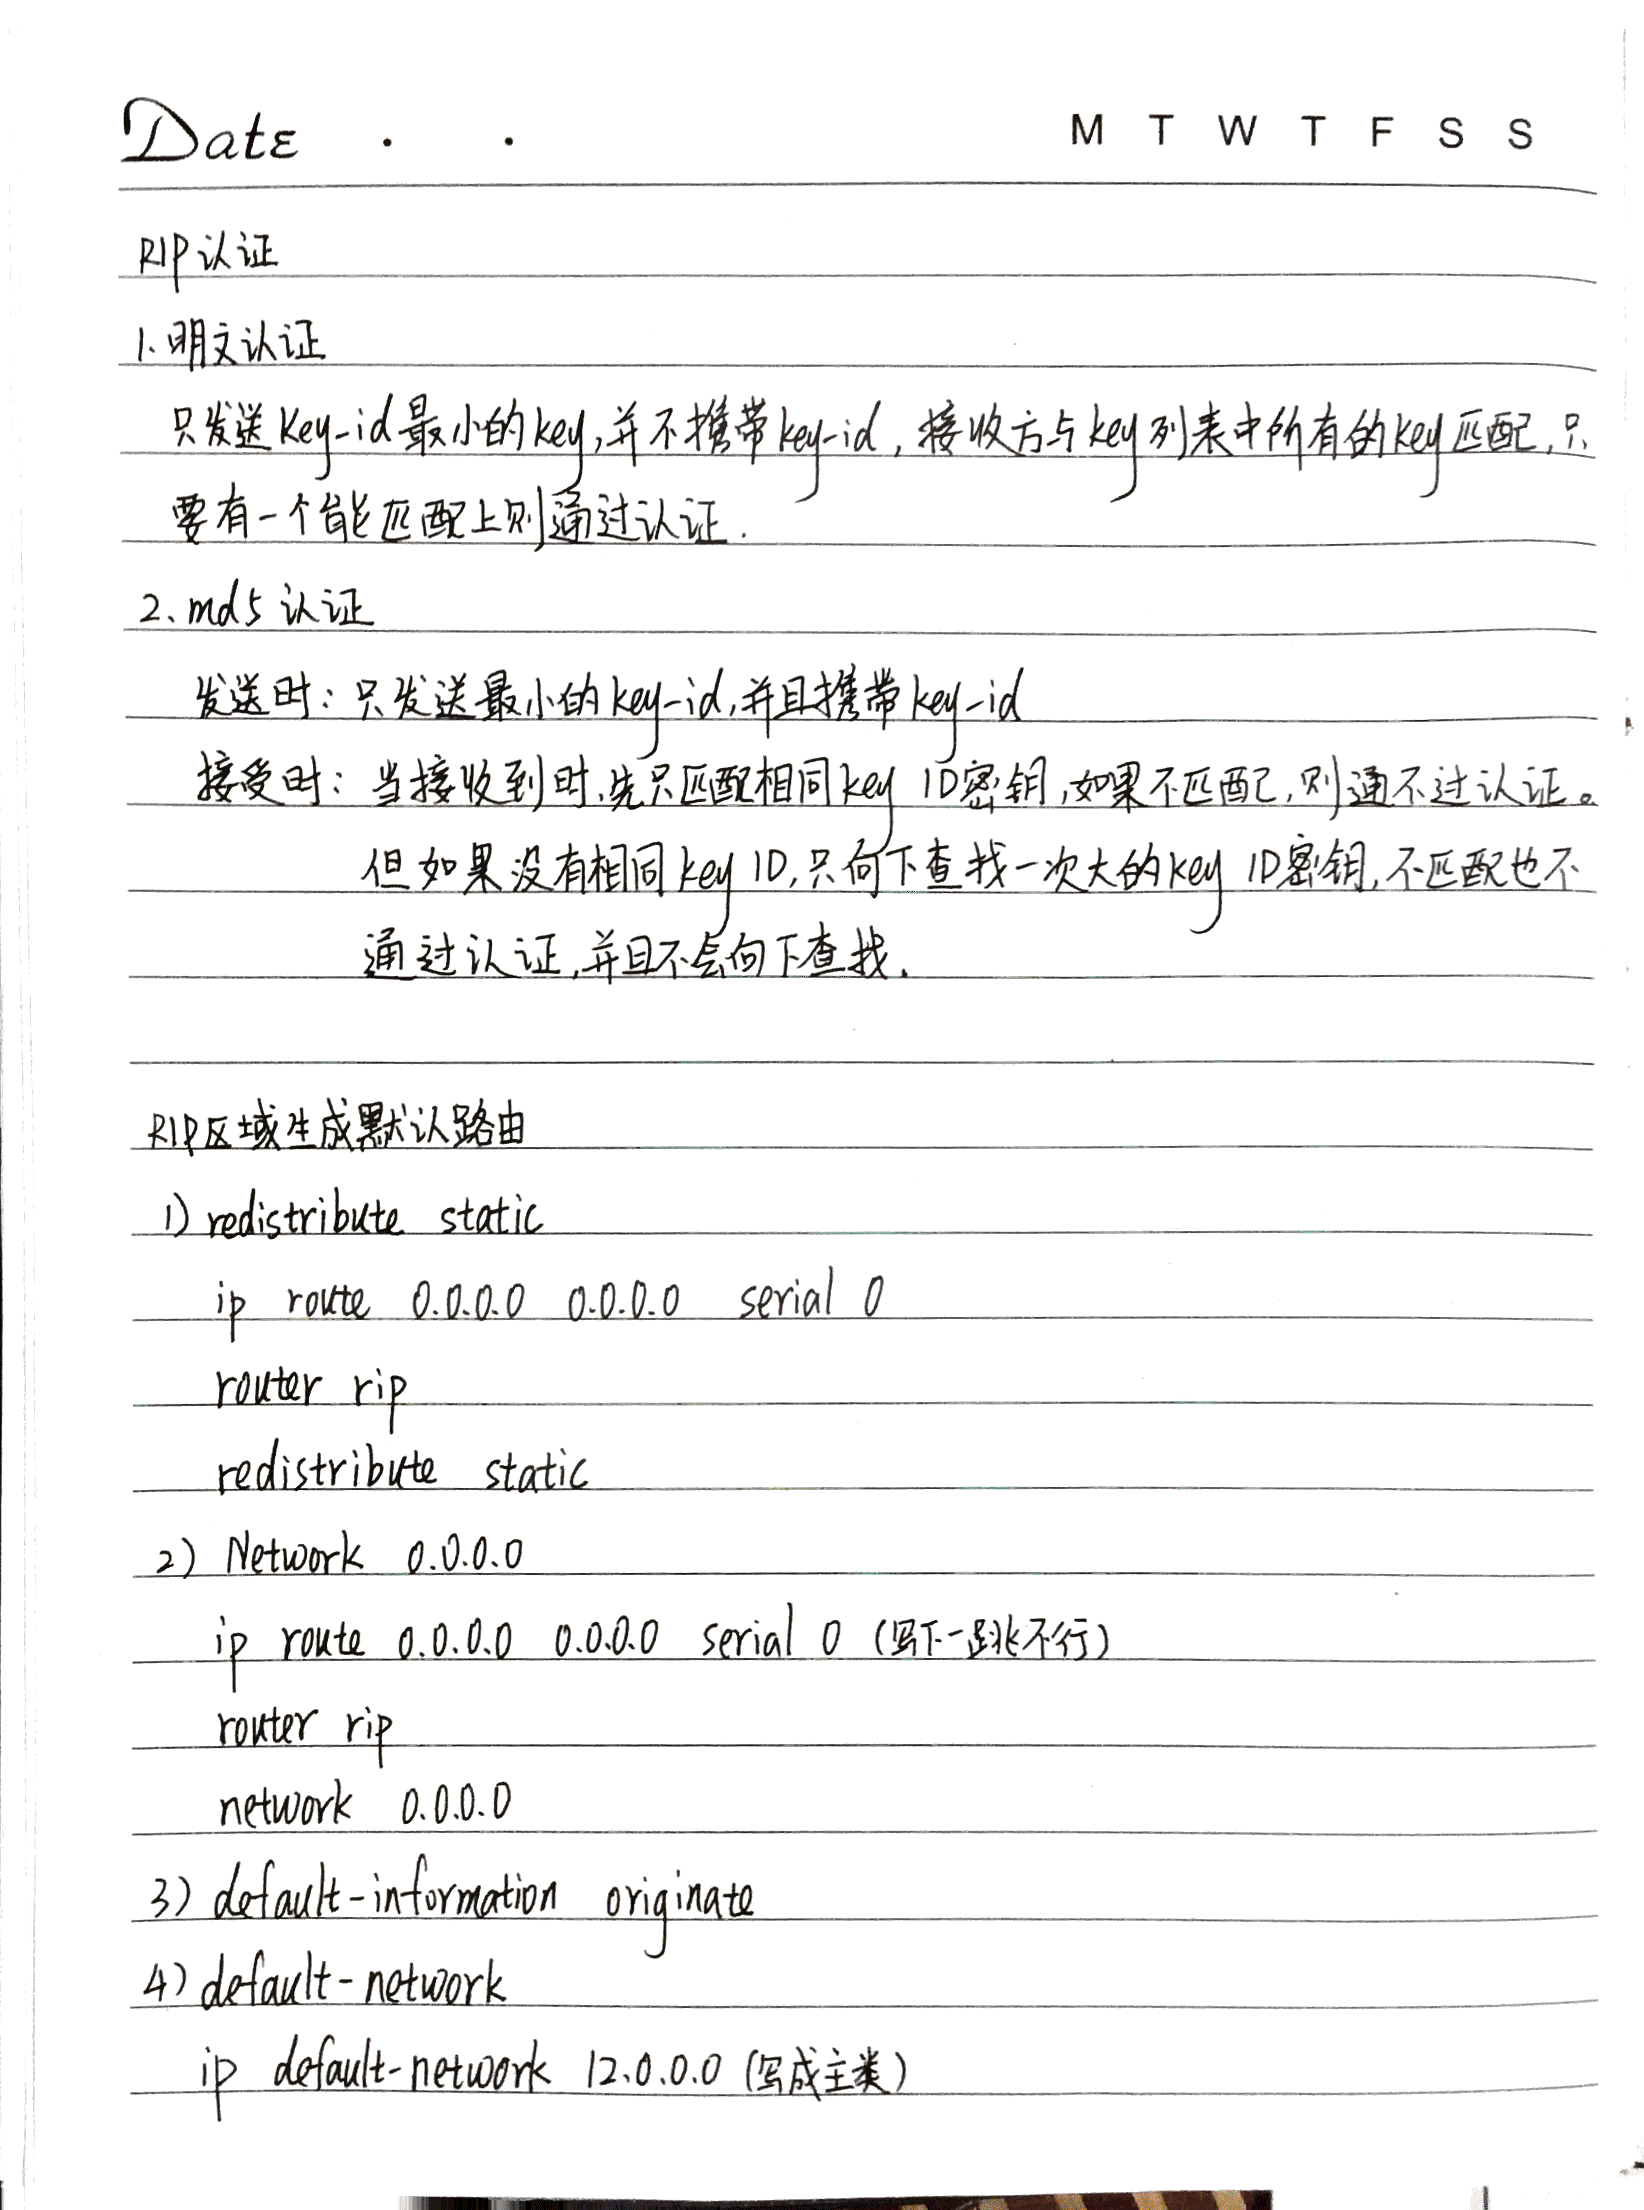 Date . .  M T W T F S S
RIP认证
1.明文认证
只发送Key-id最小的key,并不携带key-id,接收方与key列表中所有的key匹配,只
要有一个能匹配上则通过认证.
2、md5认证
发送时:只发送最小的key-id,并且携带key-id
接受时:当接收到时,先只匹配相同key ID密钥,如果不匹配,则通不过认证。
但如果没有相同key ID,只向下查找一次大的key ID密钥,不匹配也不
通过认证,并且不会向下查找.
RIP区域生成默认路由
1) redistribute static
ip route 0.0.0.0 0.0.0.0 serial 0
router rip
redistribute static
2) Network 0.0.0.0
ip route 0.0.0.0 0.0.0.0 serial 0 (写下一跳不行)
router rip
network 0.0.0.0
3) default-information originate
4) default-network
ip default-network 12.0.0.0 (写成主类)